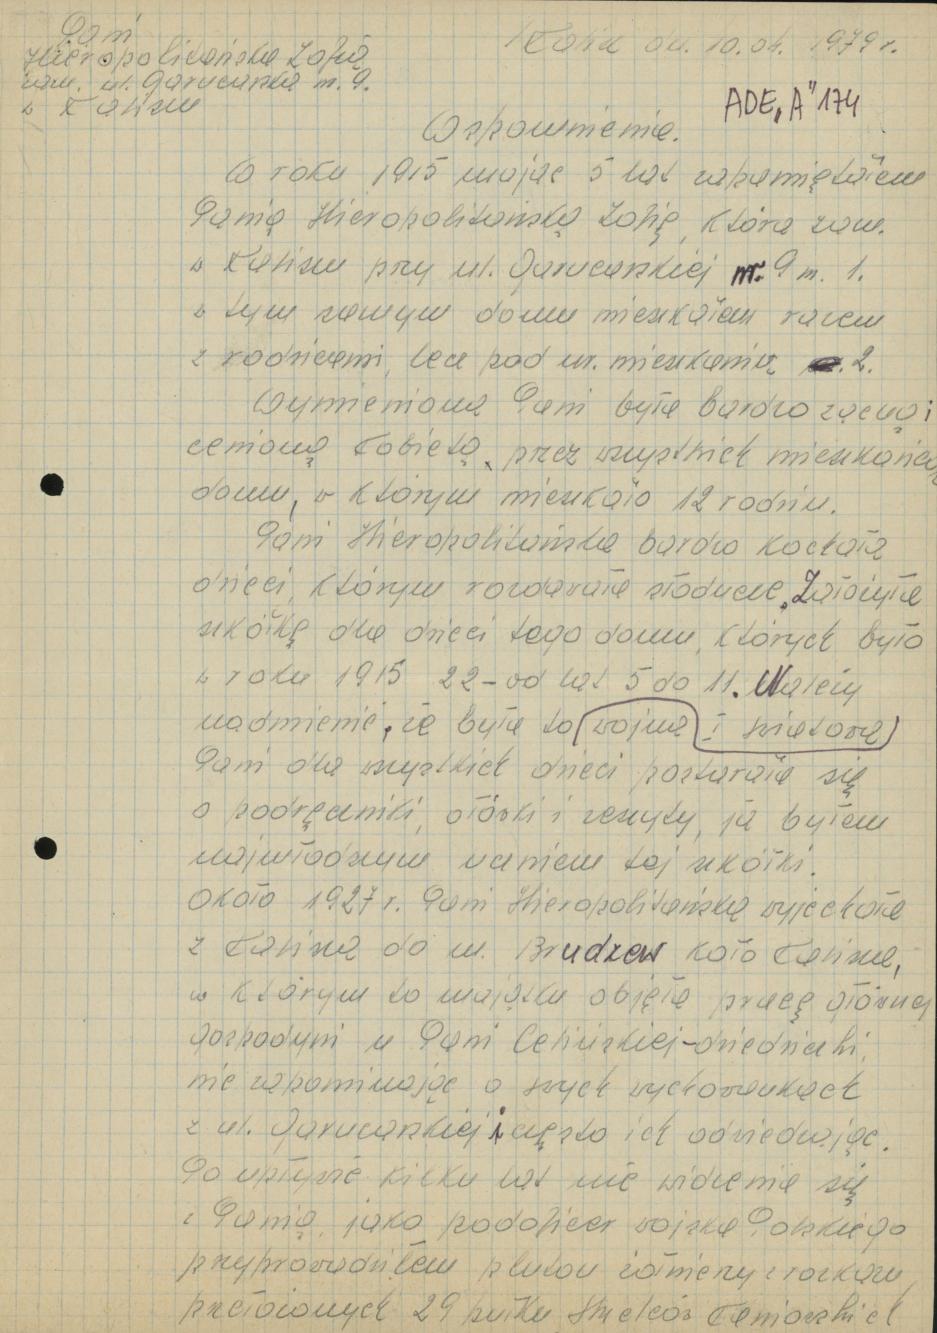 Pani
Hieropolitańska Zofia
zam. ul. Garncarska m. 9.
w Kalisz
Kalisz dn. 10.01. 1979 r.
ADE „A" 174
Wspomnienie.
W roku 1915 mając 5 lat zapamiętałem
Panią Hieropolitańską Zofię, która zam.
w Kaliszu przy ul. Garncarskiej nr. 9 m. 1.
w tym samym domu mieszkałem razem
z rodzicami, lecz pod nr. mieszkania 2.
Wymieniona Pani była bardzo zacną i
cenioną kobietą, przez wszystkich mieszkańców
domu, w którym mieszkało 12 rodzin.
Pani Hieropolitańska bardzo kochała
dzieci, którym rozdawała słodycze. Założyła
szkółkę dla dzieci tego domu, których było
w roku 1915 22 – od lat 5 do 11. Należy
nadmienić, że była to wojna I światowa
Pani dla wszystkich dzieci postarała się
o podręczniki, ołówki i zeszyty, ja byłem
najmłodszym uczniem tej szkółki.
Około 1927 r. Pani Hieropolitańska wyjechała
z Kalisza do m. Brudzew koło Kalisza,
w którym to majątku objęła pracę głównej
gospodyni u Pani –dziedziczki,
nie zapominając o swych wychowankach
z ul. Garncarskiej i często ich odwiedzając.
Po upływie kilku lat nie widzenia się
z Panią, jako podoficer wojska Polskiego
przyprowadziłem pluton żołnierzy z rozkazu
przełożonych 29 pułku Strzelców Kaniowskich